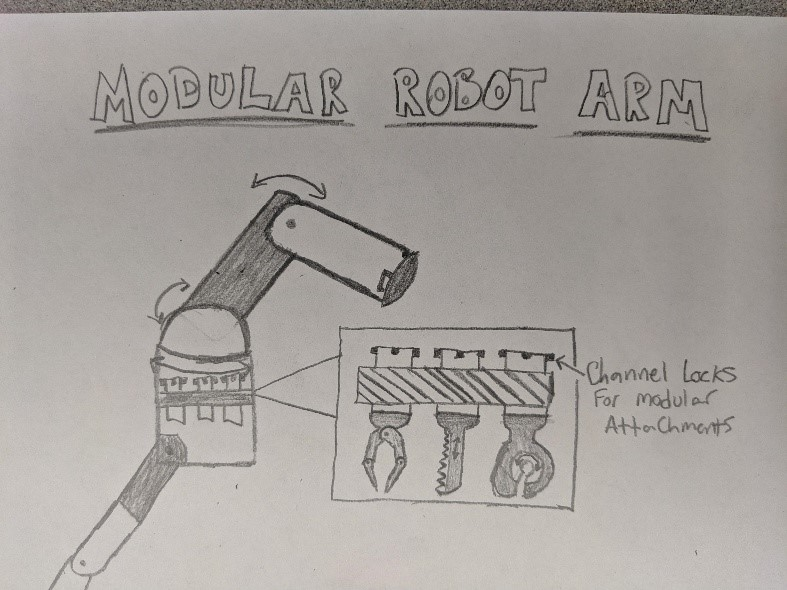 MODULAR ROBOT ARM
Channel Locks
For modular
Attachments